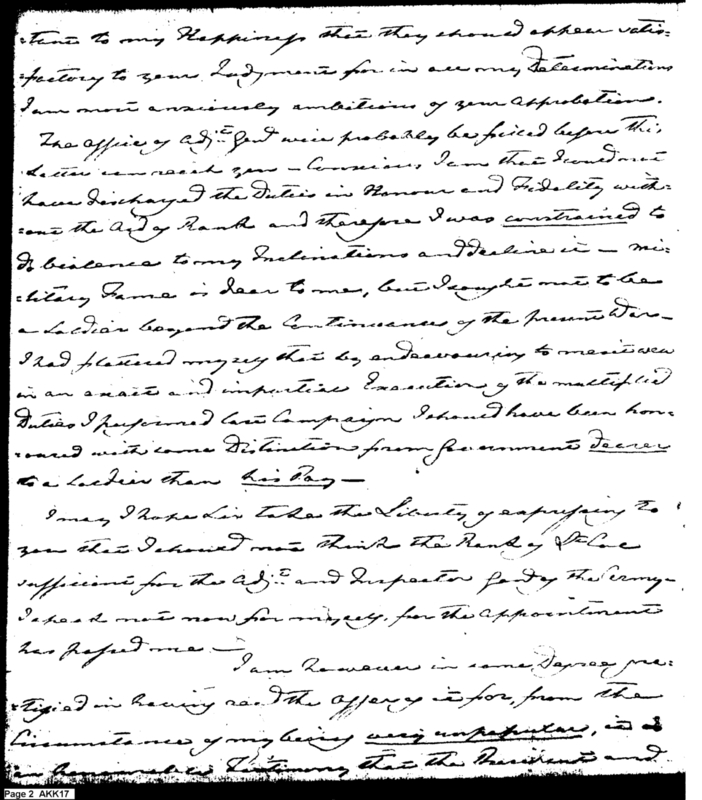 :tial to my Happiness that they should appear satis:
:factory to your Judgment for in all my Determinations
I am most anxiously ambitious of your approbation.
The Office of Adj.t Gen.l will probably be filled before this
Letter can reach you – Conscious I am that I could not
have discharged the Duties in Honour and Fidelity with:
:out the Aid of Rank and therefore I was constrained to
do violence to my Inclinations and decline it – mi:
:litary Fame is dear to me, but I sought not to be
a Soldier beyond the Continuance of the present War –
I had flattered myself that by endeavouring to merit well
in an exact and impartial Execution of the multiplied
Duties I performed last Campaign I should have been hon:
:oured with some Distinction from Government dearer
to a Soldier than his Pay –
I may I hope Sir take the Liberty of expressing to
you that I should not think the Rank of Lt Col
sufficient for the Adj.t and Inspector Gen.l of the Army –
I speak not now for myself, for the appointment
has passed me –
I am however in some Degree gra:
:tified in having read the offer of it for, from the
Circumstance of my being very unpopular, it is
an honourable Testimony that the President and
Page 2 AKK17